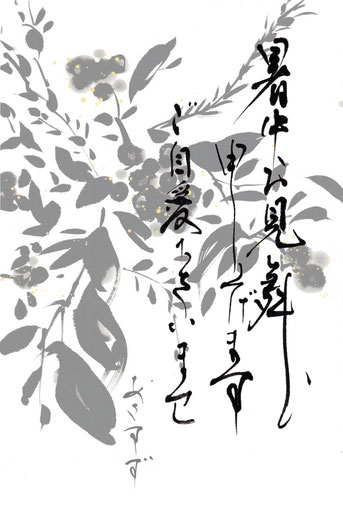 暑中お見舞い
申し上げます
ご自愛くださいませ